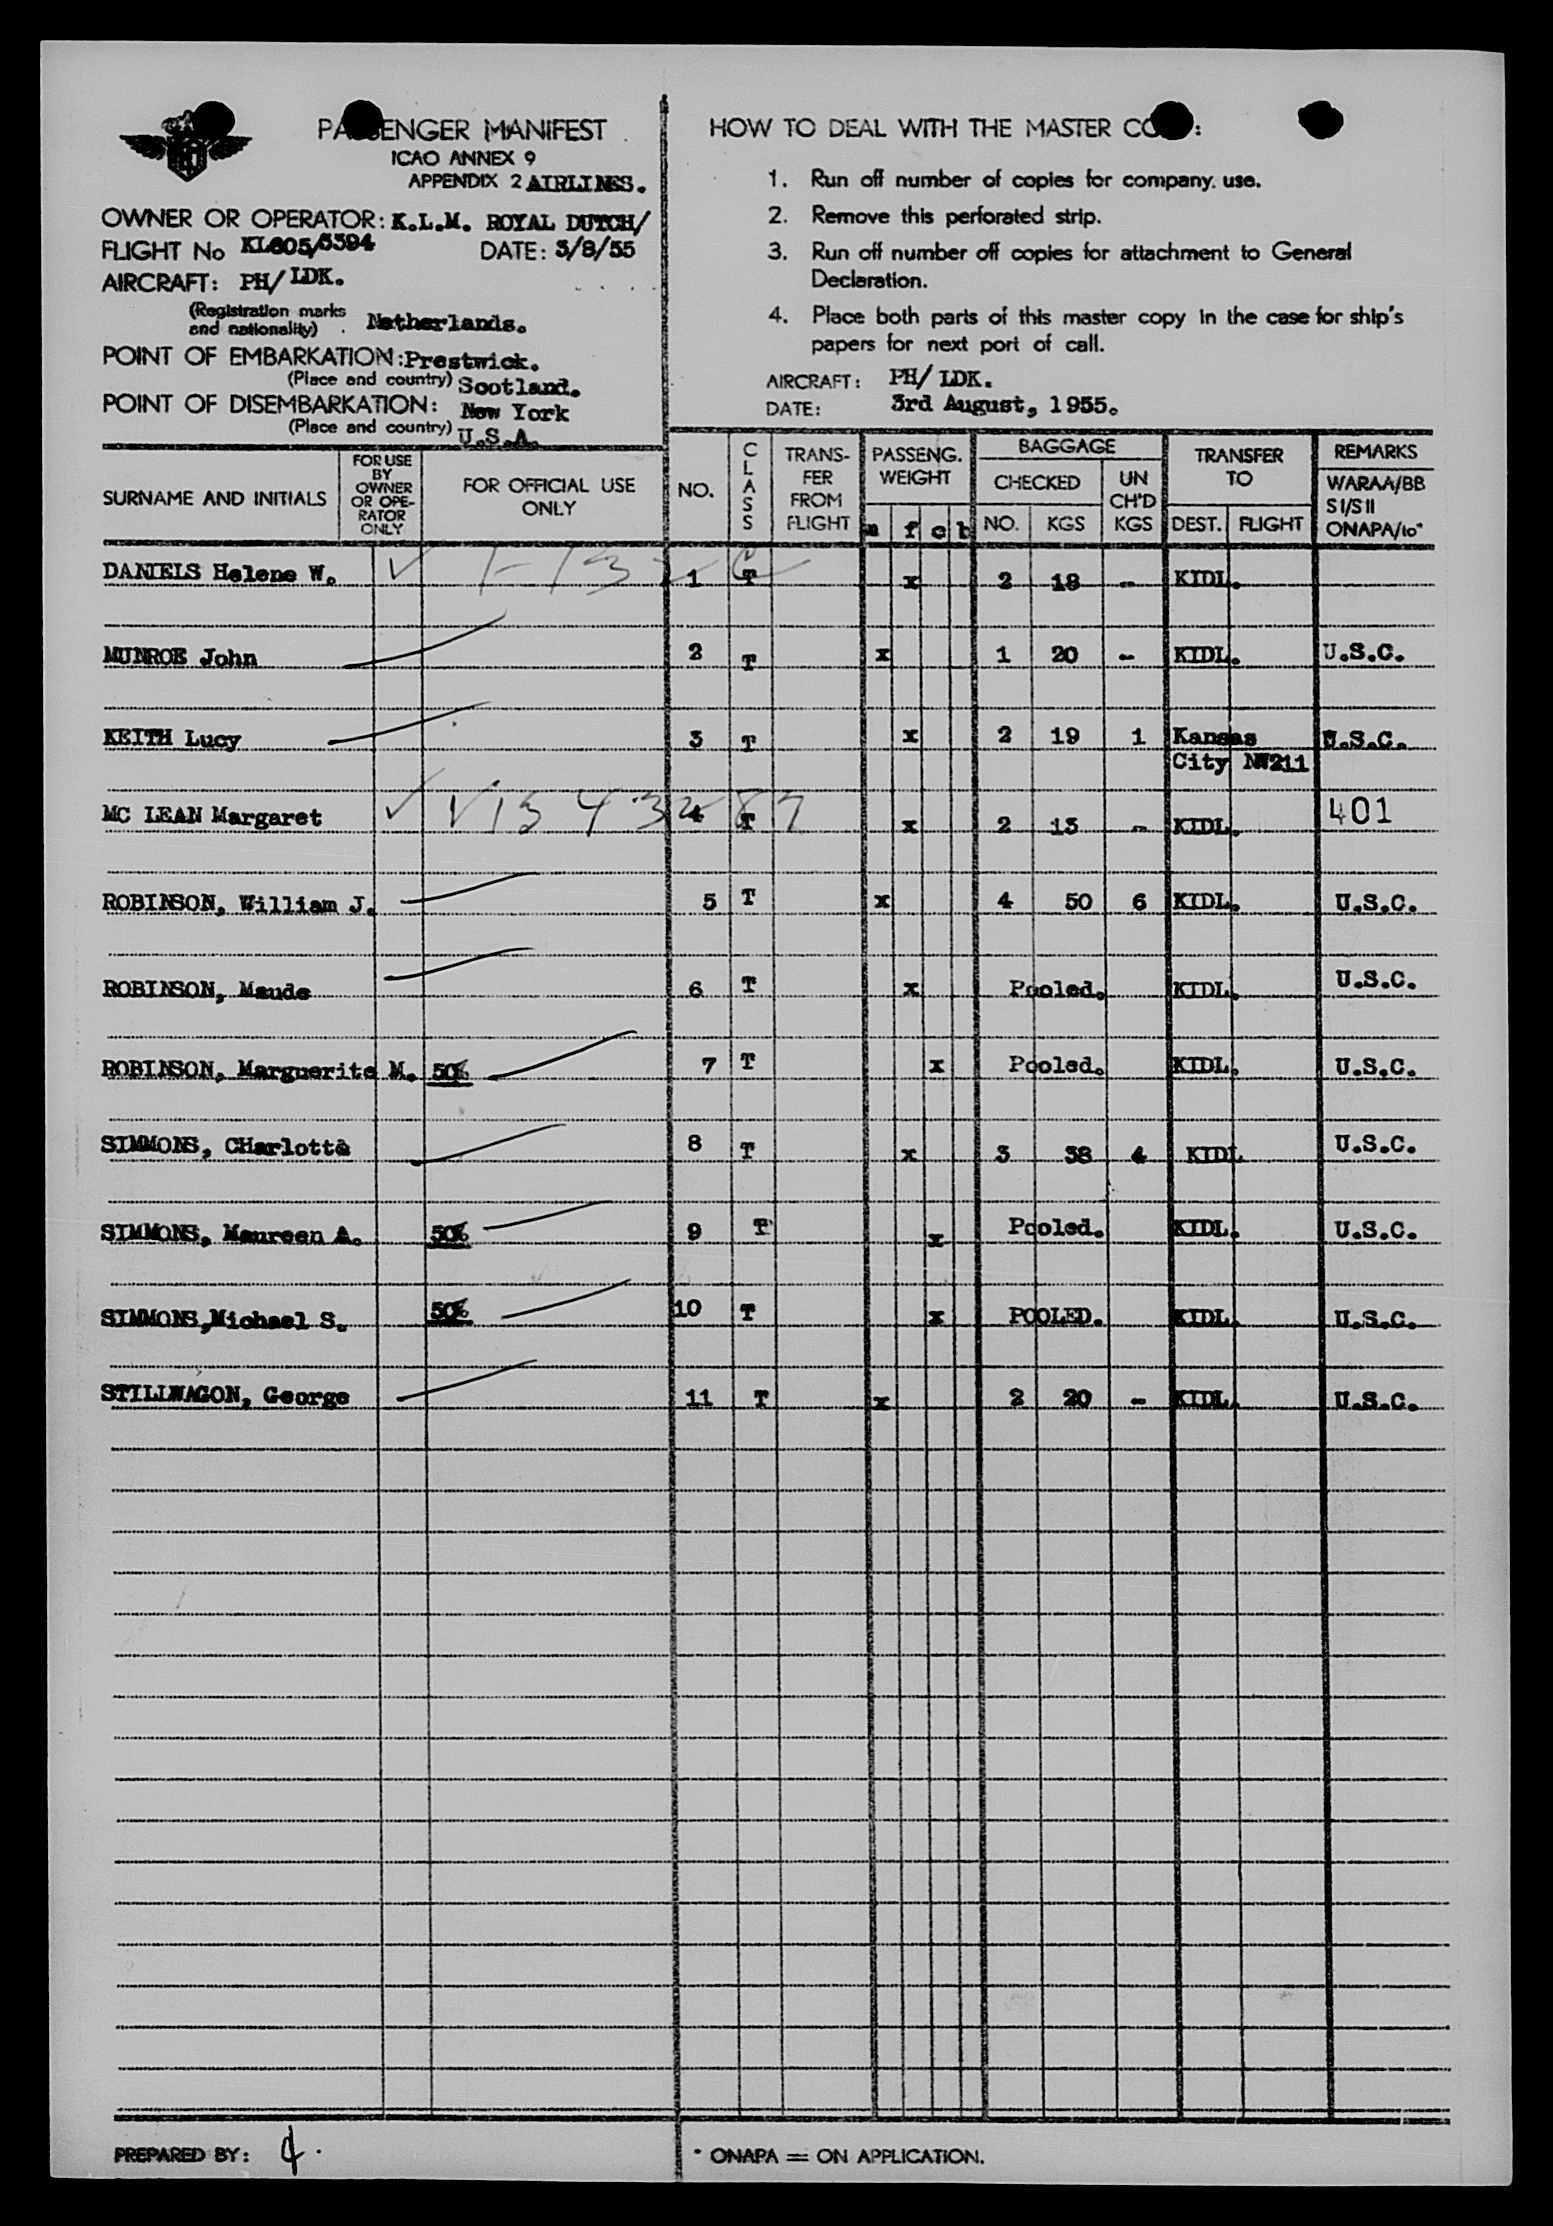 PASSENGER MANIFEST
ICAO ANNEX 9
APPENDIX 2 AIRLINES.
OWNER OR OPERATOR: K.L.M. ROYAL DUTCH/
FLIGHT No KL605/3394 DATE: 3/8/55
AIRCRAFT: PH/LDK.
(Registration marks
and nationality) Netherlands.
POINT OF EMBARKATION: Prestwick.
(Place and country) Scotland.
POINT OF DISEMBARKATION: New York
(Place and country) U.S.A.
HOW TO DEAL WITH THE MASTER :
1. Run off number of copies for company. use.
2. Remove this perforated strip.
3. Run off number off copies for attachment to General
Declaration.
4. Place both parts of this master copy in the case for ship's
papers for next port of call.
AIRCRAFT: PH/LDK.
DATE: 3rd August, 1955.
SURNAME AND INITIALS
FOR USE
BY
OWNER
OR OPE-
RATOR
ONLY
FOR OFFICIAL USE
ONLY
NO.
CLASS
TRANS-
FER
FROM
FLIGHT
PASSENG.
WEIGHT
m f c b
BAGGAGE
CHECKED
NO. KGS
UN
CH'D
KGS
TRANSFER
TO
DEST. FLIGHT
REMARKS
WARAA/BB
SI/SII
ONAPA/to*
DANIELS Helene W. 1 T x 2 18 - KIDL.
MUNROE John 2 T x 1 20 - KIDL. U.S.C.
KEITH Lucy 3 T x 2 19 1 Kansas U.S.C.
City NW211
MC LEAN Margaret V1543287 4 T x 2 13 - KIDL. 401
ROBINSON, William J. 5 T x 4 50 6 KIDL. U.S.C.
ROBINSON, Maude 6 T x Pooled. KIDL. U.S.C.
ROBINSON, Marguerite M. 50% 7 T x Pooled. KIDL. U.S.C.
SIMMONS, CHarlotte 8 T x 3 38 4 KIDL U.S.C.
SIMMONS, Maureen A. 50% 9 T x Pooled. KIDL. U.S.C.
SIMMONS,Michael S. 50% 10 T x POOLED. KIDL. U.S.C.
STILLWAGON, George 11 T x 2 20 - KIDL. U.S.C.
PREPARED BY:
* ONAPA = ON APPLICATION.